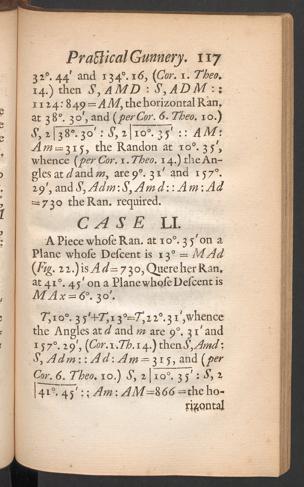 Practical Gunnery. 117
32°. 44′ and 134°. 16, (Cor. 1. Theo.
14.) then S, AMD : S, ADM : :
1124 : 849 = AM, the horizontal Ran.
at 38°. 30′, and (per Cor. 6. Theo. 10.)
S, 2|38°. 30′ : S, 2|10°. 35′ : : AM :
Am = 315, the Randon at 10°. 35′,
whence (per Cor. 1. Theo. 14.) the An-
gles at d and m, are 9°. 31′ and 157°.
29′, and S, Adm : S, Amd : : Am : Ad
= 730 the Ran. required.
CASE LI.
A Piece whoſe Ran. at 10°. 35′ on a
Plane whoſe Deſcent is 13° = MAd
(Fig. 22.) is Ad = 730, Quere her Ran.
at 41°. 45′ on a Plane whoſe Deſcent is
MAx = 6°. 30′.
T, 10°. 35′ + T, 13° = T, 22°. 31′, whence
the Angles at d and m are 9°. 31′ and
157°. 29′, (Cor. 1. Th. 14.) then S, Amd :
S, Adm : : Ad : Am = 315, and (per
Cor. 6. Theo. 10.) S, 2|10°. 35′ : S, 2
|41°. 45′ : ; Am : AM = 866 = the ho-
rizontal